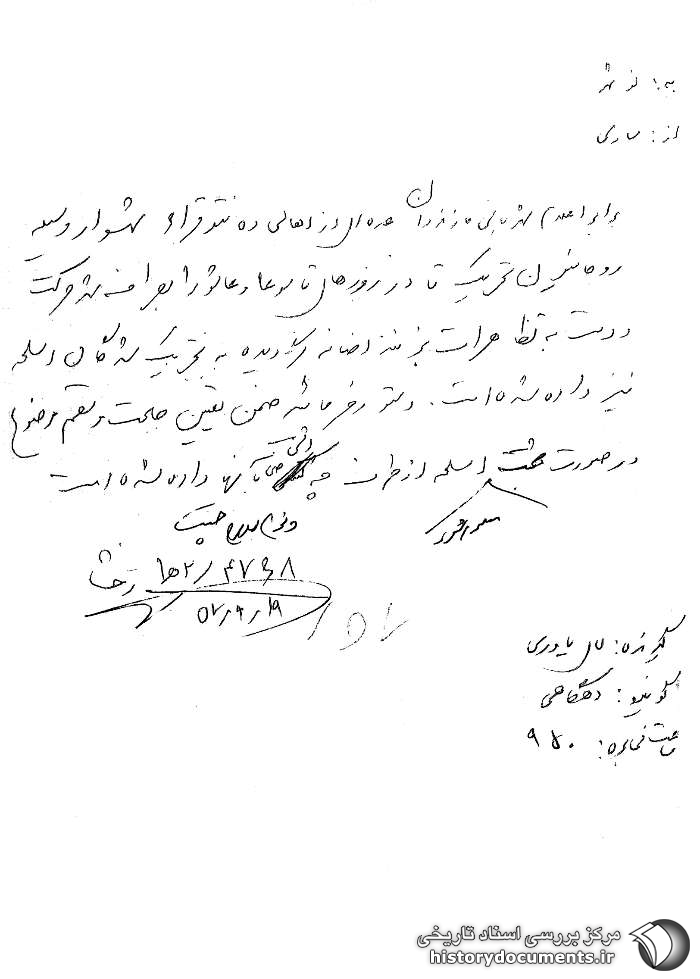 به: نوشهر
از: ساری
برابر اعلام شهربانی مازندران عده‌ای از اهالی ده قراء شهسوار وسیله
روحانیون تحریک تا در روزهای تاسوعا و عاشورا به شهر حرکت
و دست به تظاهرات بزنند اضافه گردیده به تحریک شدگان اسلحه
نیز داده شده است. دستور فرمائید ضمن تعیین صحت و سقم موضوع
در صورت صحت اسلحه از طرف چه کسی به آنها داده شده است
۴۷۶۸ / ۲ ه‍ ۱
۵۷/۹/۱۹
گیرنده: یاوری
گوینده: دهگاهی
ساعت مخابره: ۹۵۰
مرکز بررسی اسناد تاریخی
historydocuments.ir